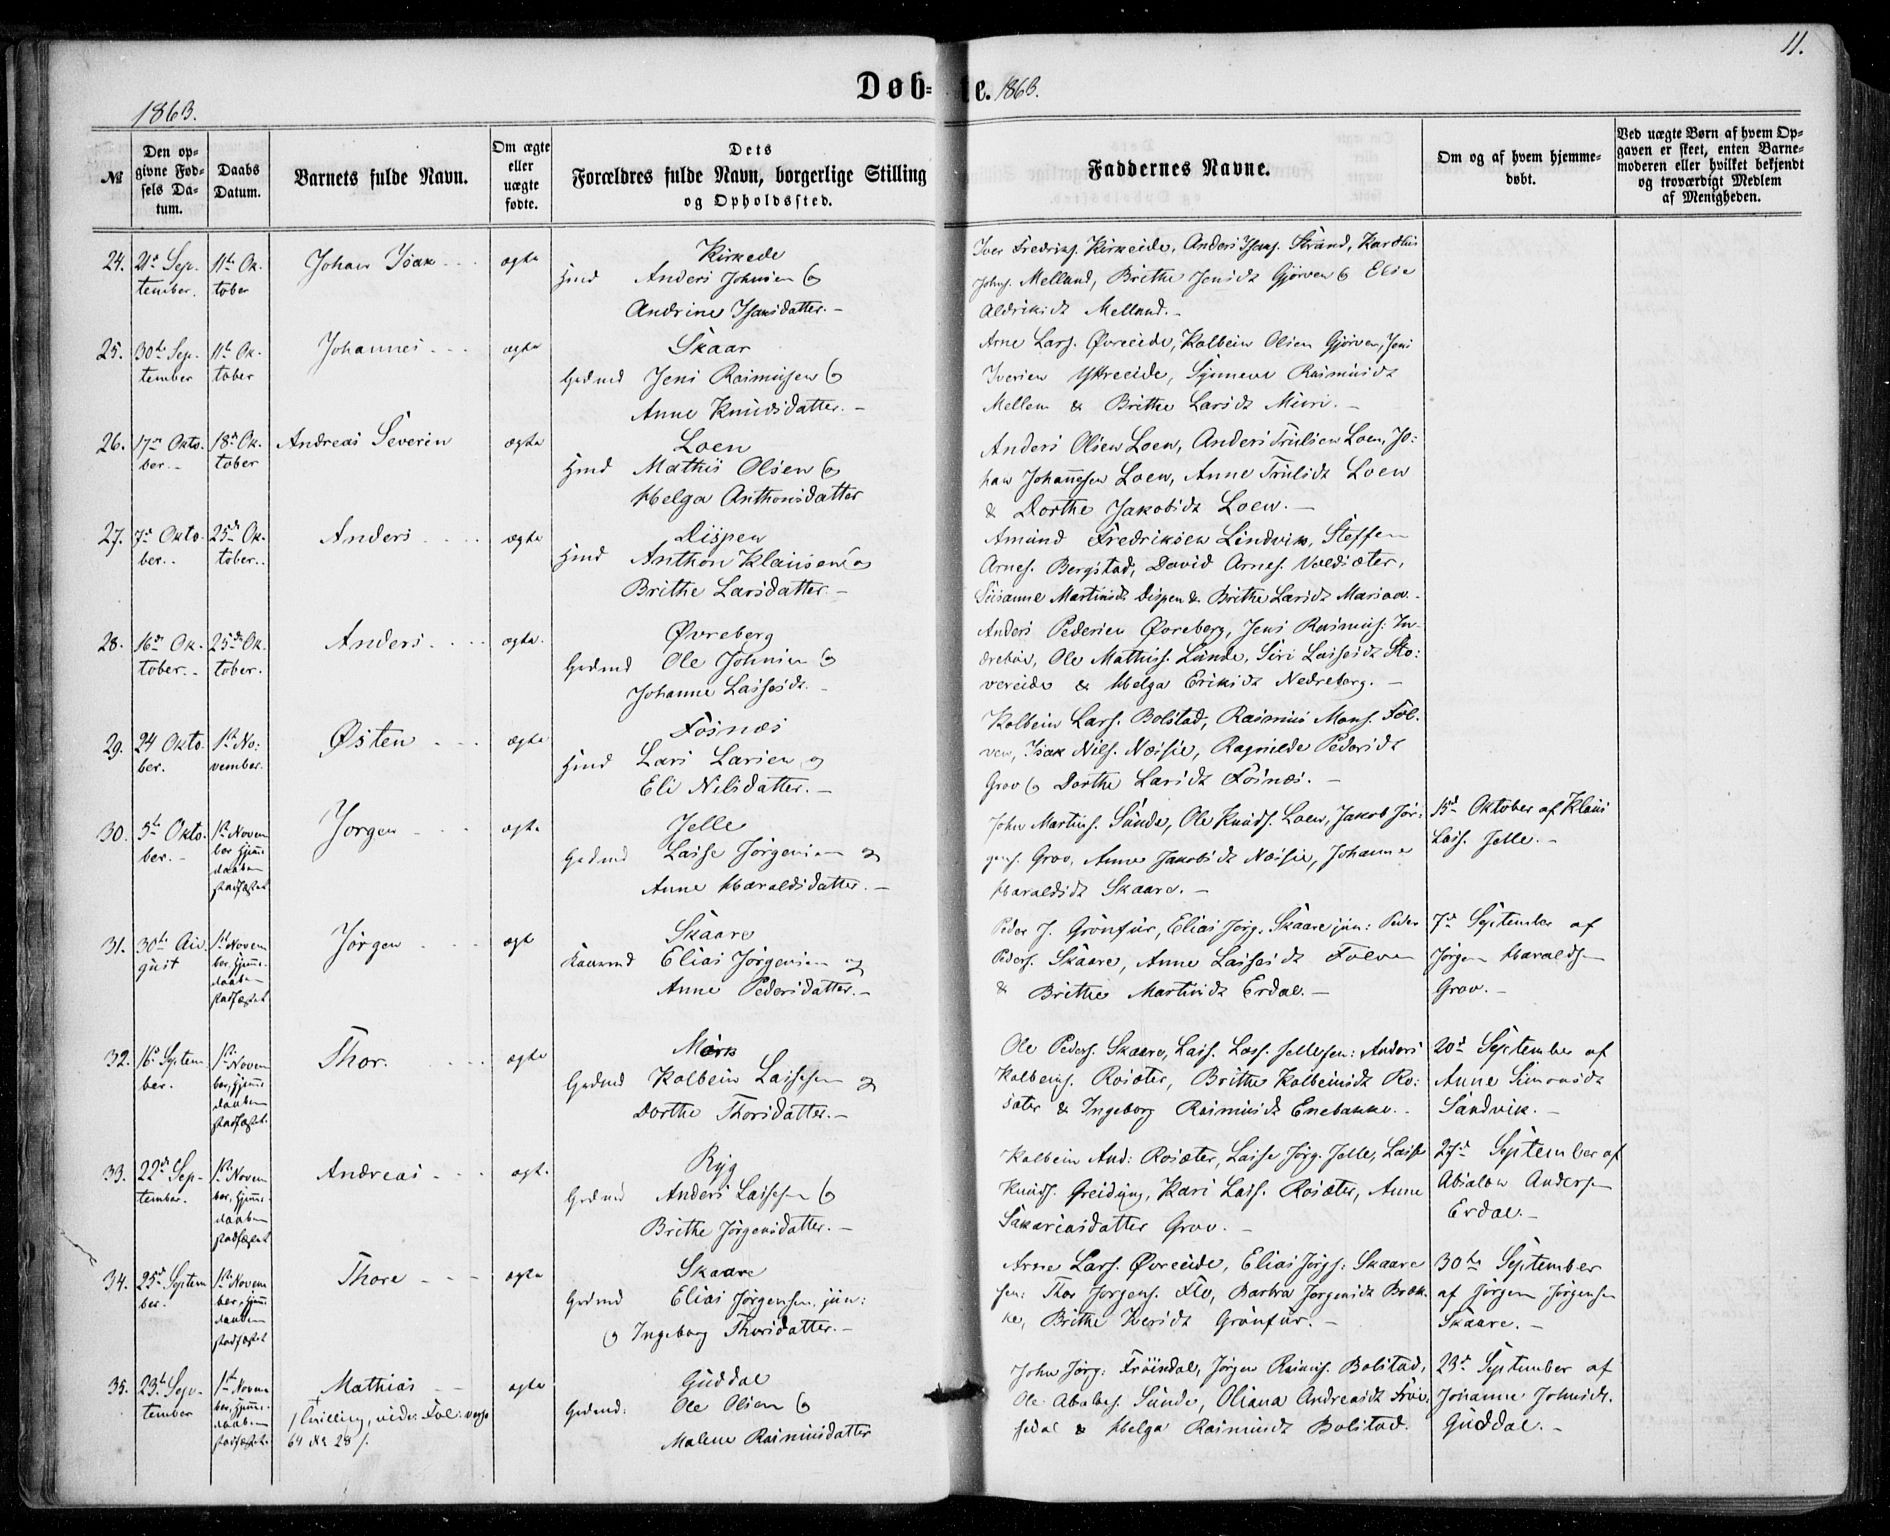 11.
Døb= te. 1863.
1863.
No
Den op-
givne Fød-
sels Da-
tum.
Daabs
Datum.
Barnets fulde Navn.
Om ægte
eller
uægte
fødte.
Dets
Forældres fulde Navn, borgerlige Stilling
og Opholdssted.
Faddernes Navne.
Om og af hvem hjemme-
døbt.
Ved uægte Børn af hvem Op-
gaven er skeet, enten Barne-
moderen eller hvilket bekjendt
og troværdigt Medlem
af Menigheden.
24. 21de Sep-
tember.
11te Ok-
tober
Johan Isak
ægte
Kirkede
Hmd Anders Johnsen &
Andrine Isaksdatter. -
Iver Fredriks. Kirkeide, Anders Isaks. Strand, Karsthi
Johns. Melland, Brithe Jensdt Gjørven & Elie
Aldriksdt Melland. -
25. 30te Sep-
tember
11te Ok-
tober
Johannes
ægte
Skaar
Grdmd Jens Rasmusen &
Anne Knudsdatter. -
Arne Lars. Øvreeide, Kolbein Olsen Gjørven, Jens
Iversen Ytreeide, Synneve Rasmusdt
Mellem & Brithe Larsdt Muri. -
26. 17de Okto-
ber. -
18de Ok-
tober
Andreas Severin
ægte
Loen
Hmd Mathis Olsen &
Helga Anthonsdatter
Anders Olsen Loen, Anders Trulsen Loen, Jo:
han Johannesen Loen, Anne Trulsdt Loen
& Dorthe Jakobsdt Loen. -
27. 7de Okto-
ber. -
25de Ok-
tober. -
Anders
ægte
Dispen
Hmd Anthon Klausen &
Brithe Larsdatter. -
Amund Fredriksen Lindvik, Steffen
Arnes. Bergstad, David Arnes. Voldsæter,
Susanne Martinsdt Dispen & Brithe Larsdt
28. 16de Ok-
tober. -
25de Ok-
tober.
Anders
ægte.
Øvreberg
Grdmd Ole Johnsen &
Johanne Lassesdt. -
Anders Pedersen Øvreberg, Jens Rasmus.
Ole Mathis. Sunde, Siri Lassesdt Sto:
vereide & Helga Eriksdt Nedreberg. -
29. 24 Okto-
ber.
1ste No:
vember.
Østen
ægte
Fosnæs
Hmd Lars Larsen og
Eli Nilsdatter. -
Kolbein Lars. Bolstad, Rasmus Mons. Fol-
ven, Isak Nils. Næssie, Ragnilde Pedersdt
Grov & Dorthe Larsdt Fosnæs. -
30. 5te Okto-
ber. -
1ste Novem
ber hjemme-
daaben
stadfæstet
Jørgen
ægte
Jelle
Grdmd Lasse Jørgensen og
Anne Haraldsdatter. -
John Martins. Sunde, Ole Knuds. Loen, Jakob Jør-
gens. Grov, Anne Jakobsdt Næssie, Johanne
Haraldsdt Skaare. -
15de Oktober af Klaus
Lass. Jelle. -
31. 30te Au-
gust
1ste Novem
ber, hjemme-
daaben
stadfæstet
Jørgen
ægte
Skaare
Elias Jørgensen og
Anne Pedersdatter. -
Peder J. Grønfur, Elias Jørg. Skaare jun: Peder
Peders. Skaare, Anne Lassesdt Folven
& Brithe Martinsdt Erdal. -
7de September af
Jørgen Haraldsen
Grov. -
32. 16de Septem
ber.
1ste Novem
ber, hjemme-
daaben
stadfæstet
Thor.
ægte
Mørk
Grdmd Kolbein Lassesen og
Dorthe Thorsdatter. -
Ole Peders. Skaare, Lass. Lass. Jelle sen: Anders
Kolbeins. Rosæter, Brithe Kolbeinsdt Ro:
sæter & Ingeborg Rasmusdt Enebakke. -
20de September af
Anne Simonsdt
Sandvik. -
33. 22de Sep-
tember.
1ste Novem
ber, hjemme-
daaben
stadfæstet
Andreas
ægte
Ryg
Grdmd Anders Lassesen &
Brithe Jørgensdatter. -
Kolbein And: Rosæter, Lasse Jørg. Jelle, Lasse
Knuds. Greidung, Kari Lass. Rosæter, Anne
Sakariasdatter Grov. -
27de September af
Absalon Andersen
Erdal. -
34. 25de Septem
ber.
1ste Novem
ber, hjemme-
daaben
stadfæstet
Thore
ægte
Skaare
Grdmd Elias Jørgensen jun:
& Ingeborg Thorsdatter. -
Arne Lars. Øvreeide, Elias Jørgs. Skaare
sen: Thor Jørgens. Flo, Barbra Jørgensdt Bræk-
ke, Brithe Iversdt Grønfur. -
30te September
af Jørgen Jørgensen
Skaare. -
35. 23de Sep-
tember
1ste Novem
ber, hjemme-
daaben
stadfæstet
Mathias
/: Tvilling, vide: Fol: verso
64 No 28 /.
ægte
Guddal
Grdmd. Ole Olsen &
Malene Rasmusdatter
John Jørg: Frøisdal, Jørgen Rasmus. Bolstad,
Ole Absalons. Sunde, Oliana Andreasdt Frøi-
sdal & Helga Rasmusdt Bolstad.
23de September af
Johanne Johnsdt.
Guddal. -